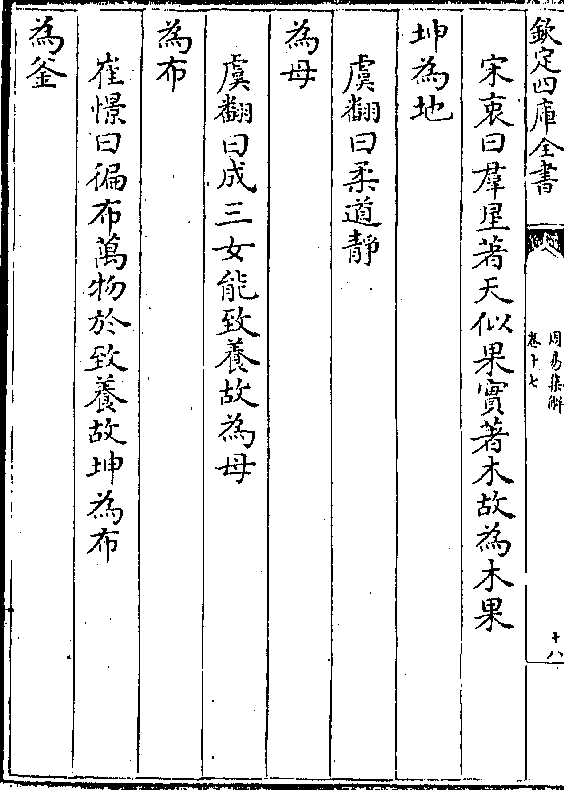 欽定四庫全書
周易集解
卷十七
十八
宋衷曰羣星著天似果實著木故為木果
坤為地
虞翻曰柔道靜
為母
虞翻曰成三女能致養故為母
為布
崔憬曰徧布萬物於致養故坤為布
為釜